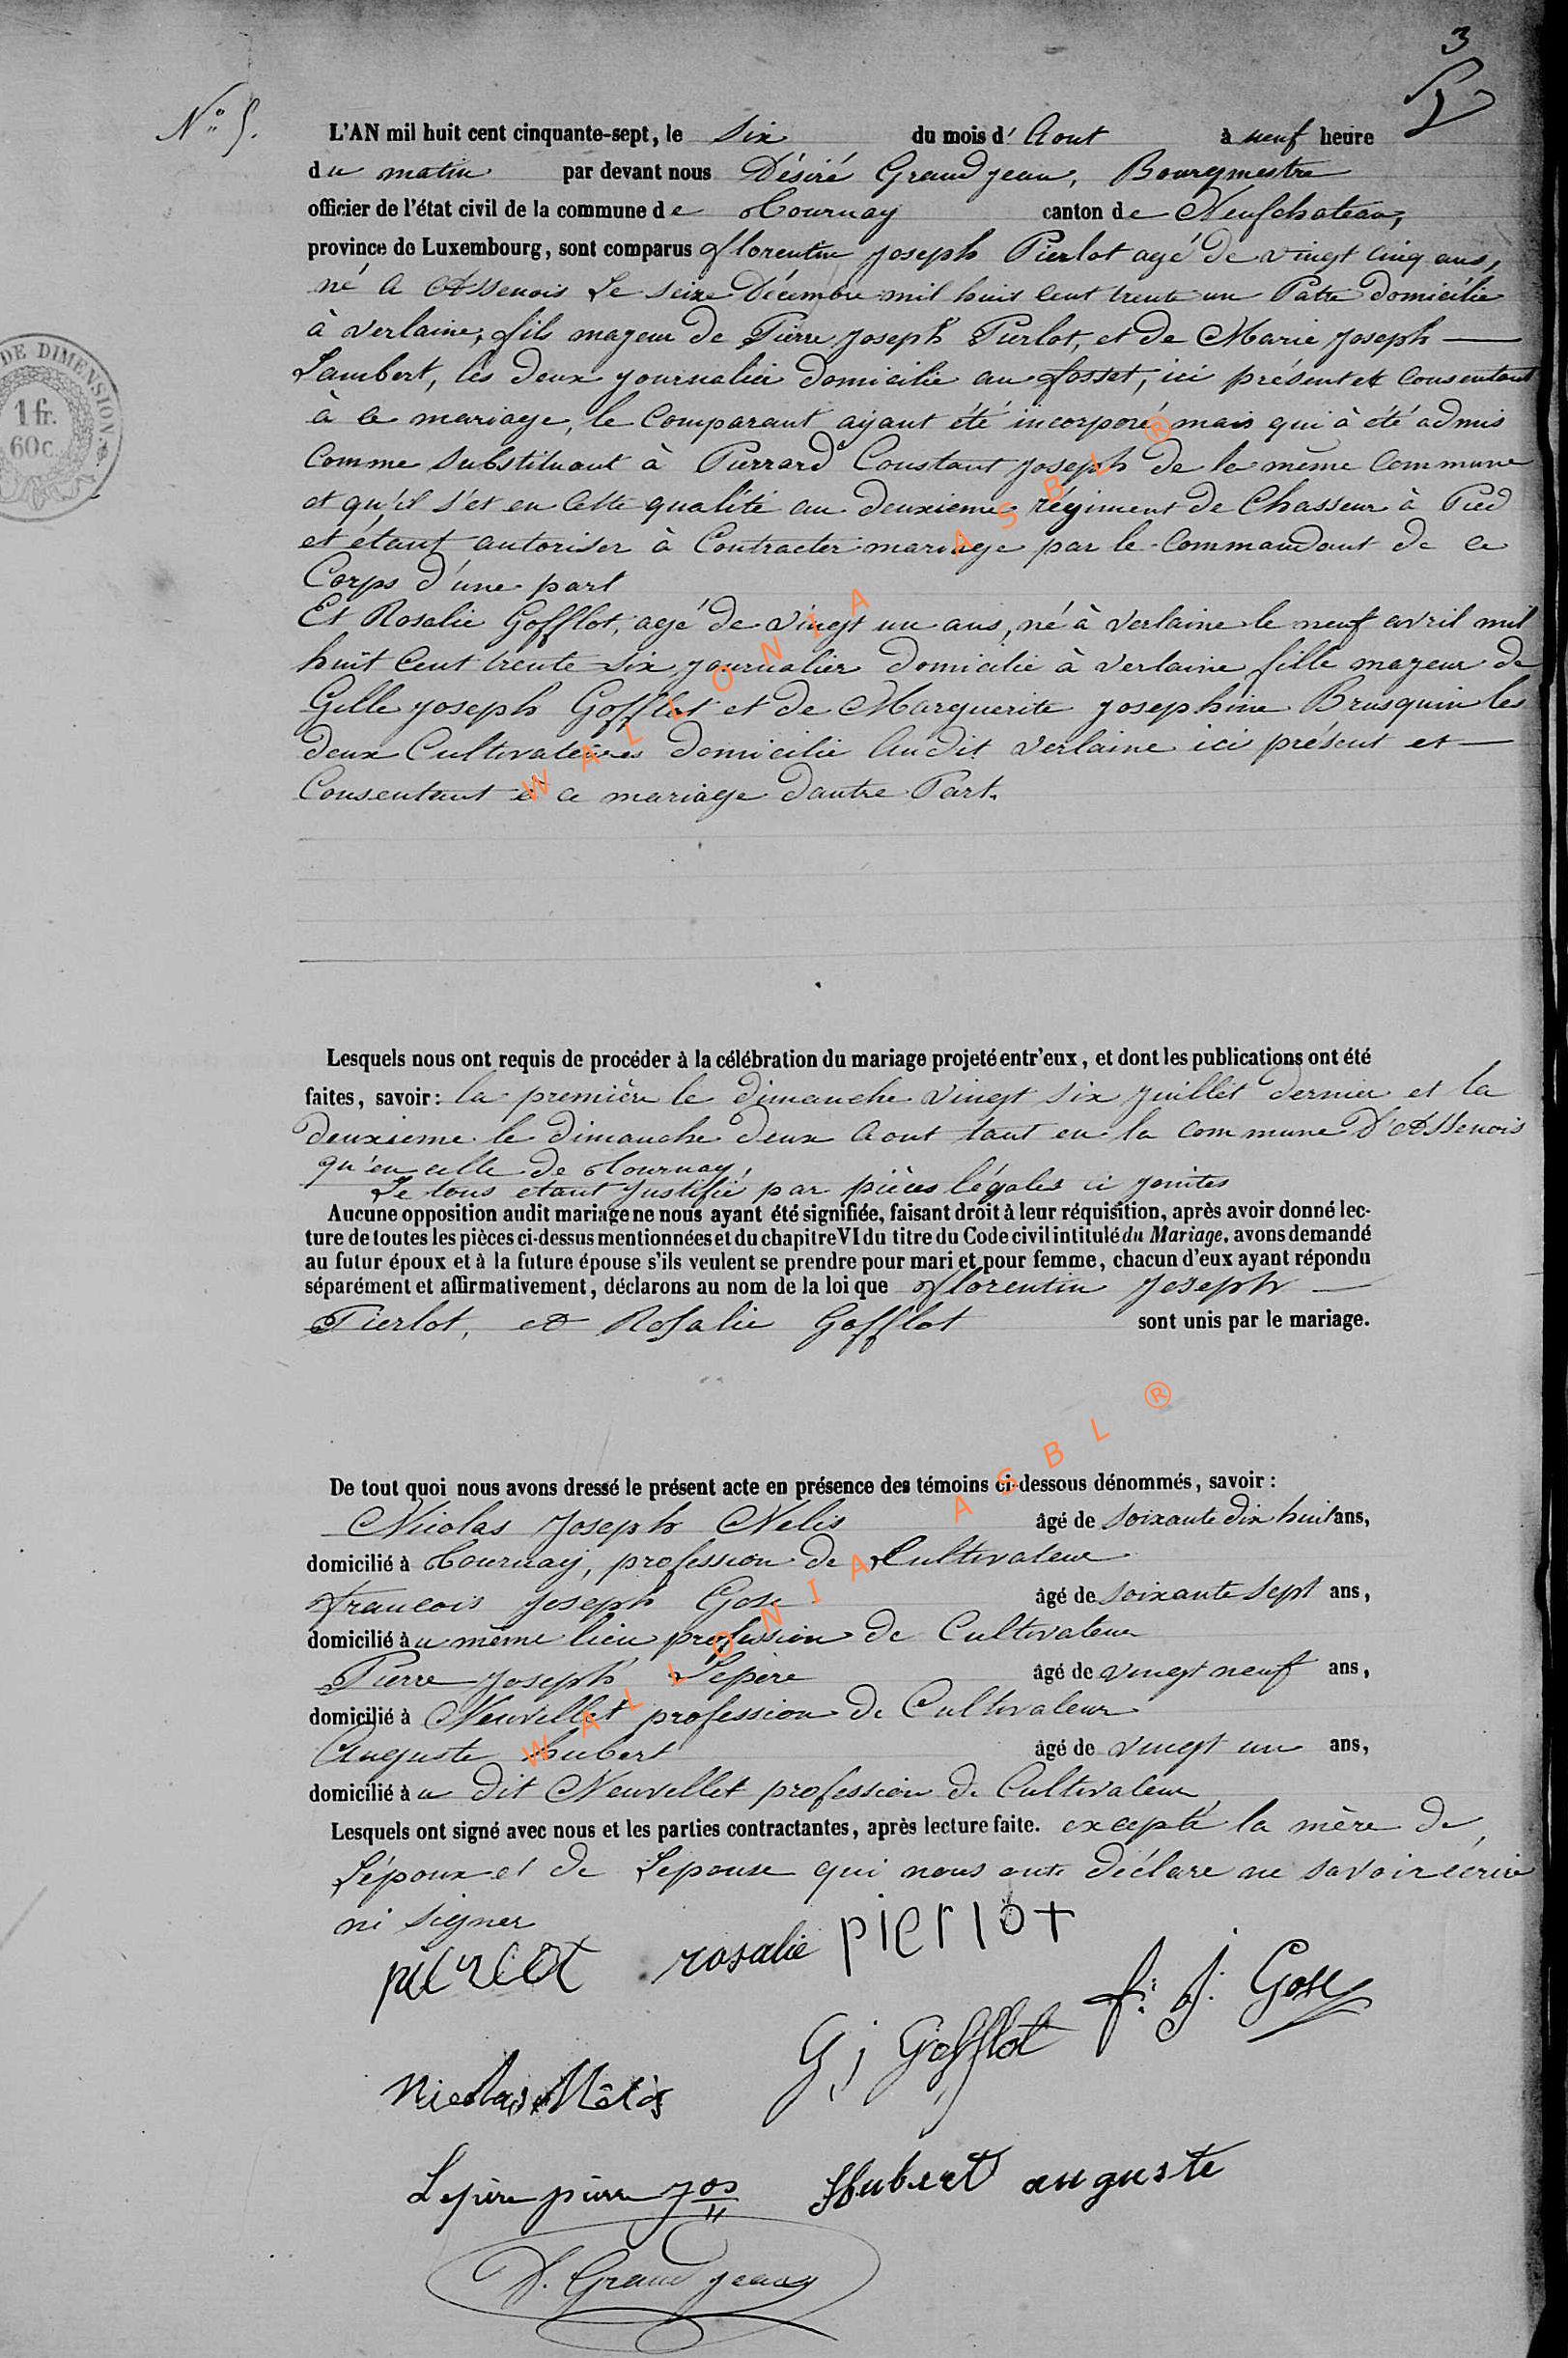 3
N° 5.
L'AN mil huit cent cinquante-sept, le six du mois d' Aout à neuf heure
du matin par devant nous Désiré Grandjean, Bourgmestre
officier de l'état civil de la commune de Tournay canton de Neufchateau,
province de Luxembourg, sont comparus florentin joseph Pierlot agé de vingt cinq ans,
né a Assenois Le seize Décembre mil huit cent trente un Patre domicilié
à verlaine, fils majeur de Pierre joseph Pierlot, et de Marie joseph
Lambert, les deux journalier domicilié au fosset, ici présent et consentant
à ce mariage, le comparant ayant été incorporé mais qui à été admis
comme substituant à Pierrard Constant joseph de le même commune
et qu'il s'et en cette qualité au deuxieme régiment de Chasseur à Pied
et étant autoriser à Contracter mariage par le Commandant de ce
Corps d'une part
Et Rosalie Gofflot, agé de vingt un ans, né à verlaine le neuf avril mil
huit cent trente six journalier domicilié à verlaine fille majeur de
Gille joseph Gofflot et de Marguerite josephine Brusquin les
deux Cultivateures domicilié audit verlaine ici présent et
Consentant à ce mariage dautre Part.
DE DIMENSION
1 fr.
60c.
Lesquels nous ont requis de procéder à la célébration du mariage projeté entr'eux, et dont les publications ont été
faites, savoir: la première le dimanche vingt six juillet dernier et la
deuxieme le dimanche deux Aout tant en la commune D'Assenois
qu'en celle de Tournay,
Le tous etant justifié par pièces légales ci jointes
Aucune opposition audit mariage ne nous ayant été signifiée, faisant droit à leur réquisition, après avoir donné lec-
ture de toutes les pièces ci-dessus mentionnées et du chapitre VI du titre du Code civil intitulé du Mariage, avons demandé
au futur époux et à la future épouse s'ils veulent se prendre pour mari et pour femme, chacun d'eux ayant répondu
séparément et affirmativement, déclarons au nom de la loi que florentin Joseph
Pierlot, et Rosalie Gofflot sont unis par le mariage.
De tout quoi nous avons dressé le présent acte en présence des témoins ci-dessous dénommés, savoir:
Nicolas Joseph Nelis âgé de soixante dix huit ans,
domicilié à Tournay, profession de Cultivateur
francois Joseph Gose âgé de soixante sept ans,
domicilié au même lieu profession de Cultivateur
Pierre Joseph Lepère âgé de vingt neuf ans,
domicilié à Neuvillet profession de Cultivateur
Auguste hubert âgé de vingt un ans,
domicilié au dit Neuvillet profession de Cultivateur
Lesquels ont signé avec nous et les parties contractantes, après lecture faite. excepté la mère de
L'époux et de L'epouse qui nous ont déclare ne savoir écrire
ni signer
pierlot rosalie pierlot
G j Gofflot f. j. Gose
Nicolas Nélis
Lepère pierre jos Hubert auguste
D. Grandjean
WALLONIA ASBL ®
WALLONIA ASBL ®